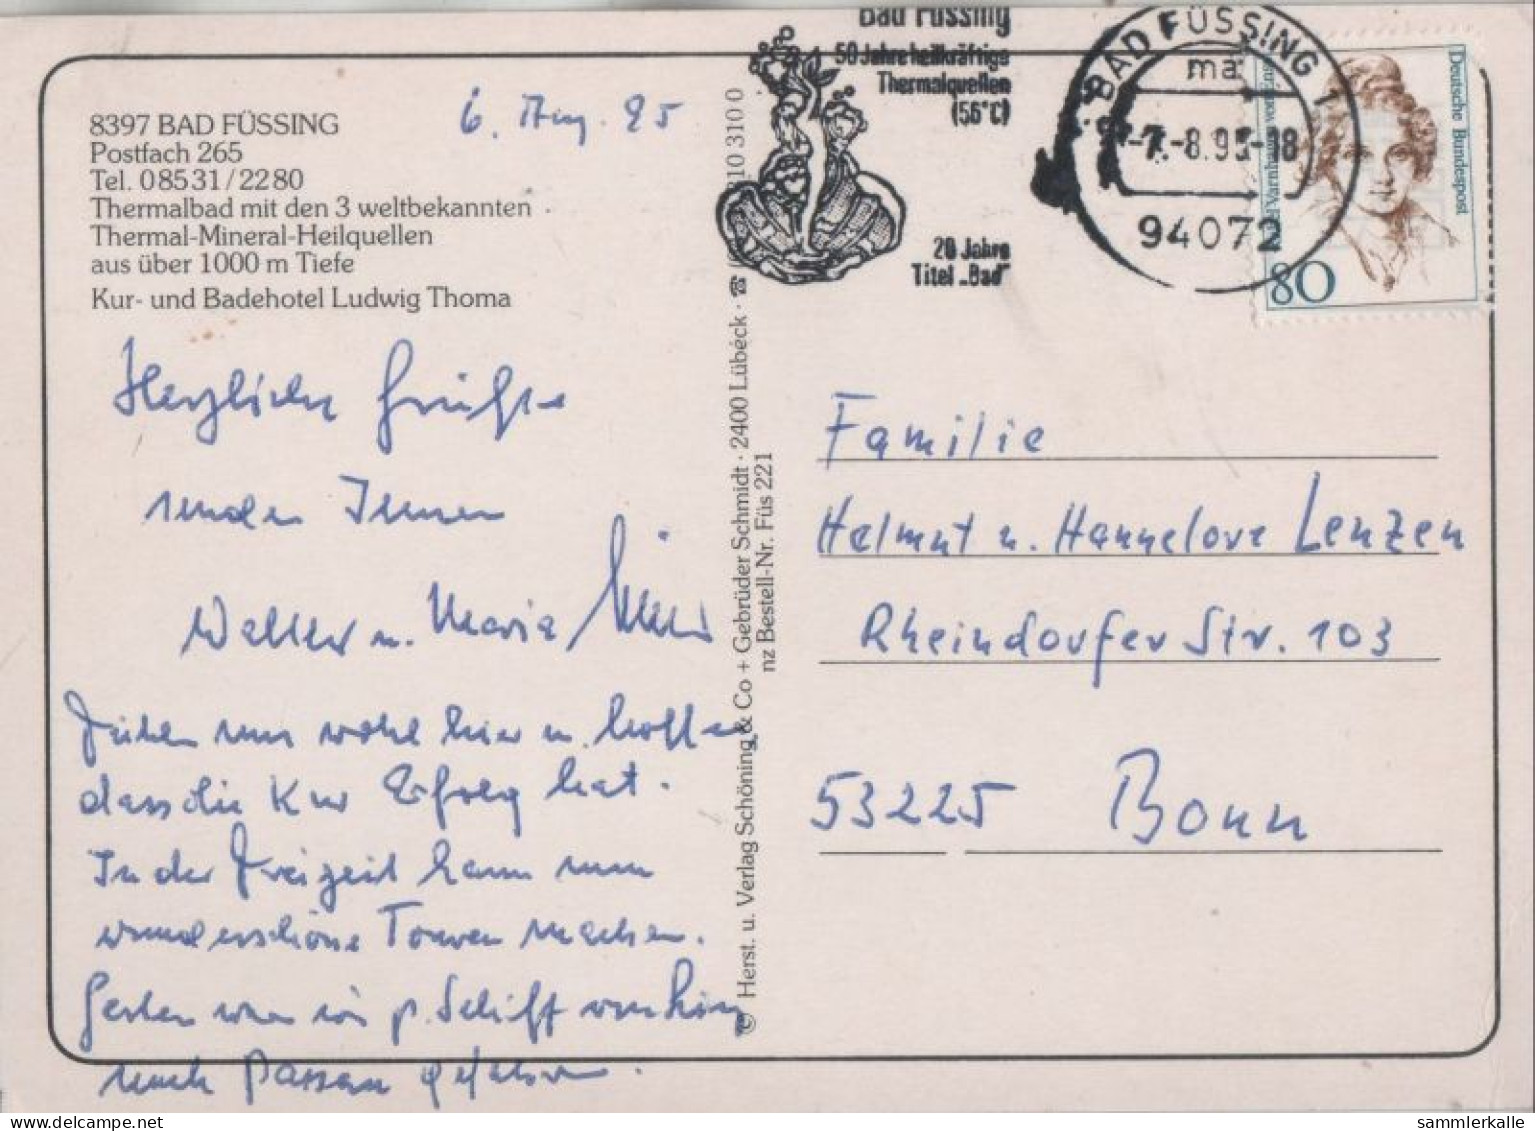 8397 BAD FÜSSING
Postfach 265
Tel. 08531/2280
Thermalbad mit den 3 weltbekannten
Thermal-Mineral-Heilquellen
aus über 1000 m Tiefe
Kur- und Badehotel Ludwig Thoma
6. Aug. 95
Herzliche Grüße
senden Ihnen
Walter u. Maria
Fühlen uns wohl hier u. hoffen
dass die Kur Erfolg hat.
In der Freizeit kann man
wunderschöne Touren machen.
Gestern waren wir p. Schiff von
nach Passau gefahren.
© Herst. u. Verlag Schöning & Co + Gebrüder Schmidt · 2400 Lübeck · ☎ 10 310 0
nz Bestell-Nr. Füs 221
Bad Füssing
50 Jahre heilkräftige
Thermalquellen
(56°C)
20 Jahre
Titel „Bad"
BAD FÜSSING 1
ma
-7.-8.95-18
94072
Deutsche Bundespost
80
Familie
Helmut u. Hannelore Lenzen
Rheindorfer Str. 103
53225 Bonn
sammlerkalle
delcampe.net